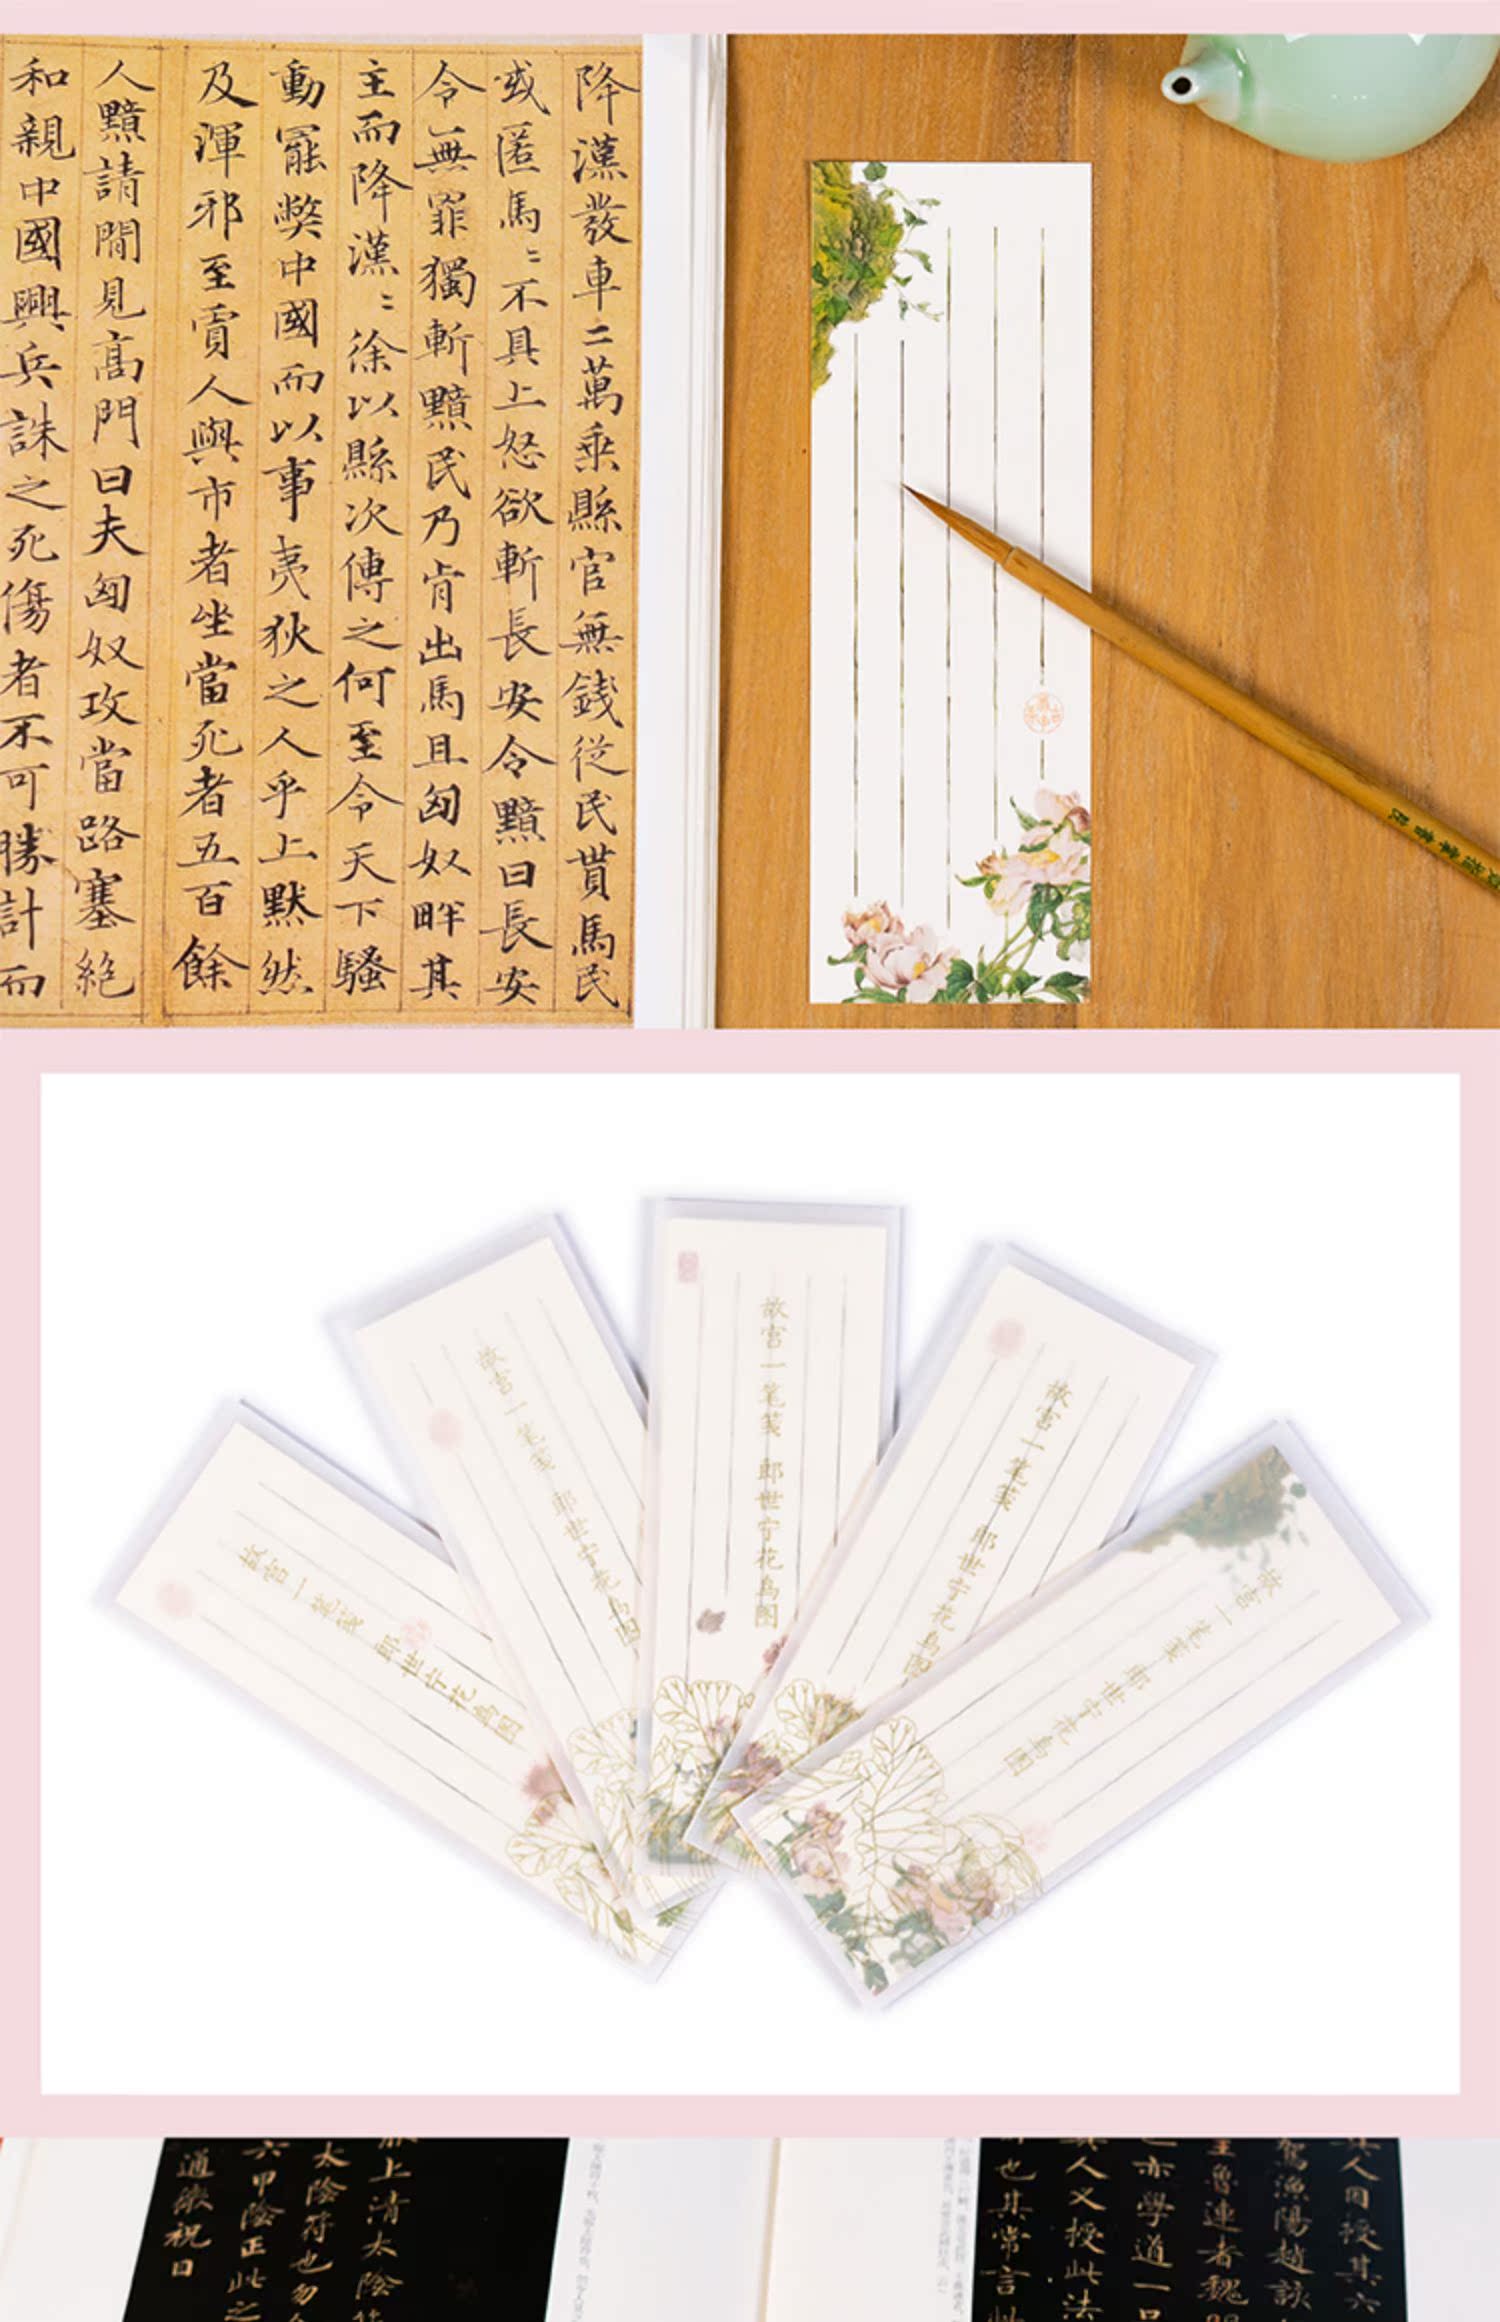 降漢發車二萬乘縣官無錢從民貰馬民
或匿馬〻不具上怒欲斬長安令黯曰長安
令無罪獨斬黯民乃肯出馬且匈奴畔其
主而降漢〻徐以縣次傳之何至令天下騷
動罷弊中國而以事夷狄之人乎上默然
及渾邪至賈人與市者坐當死者五百餘
人黯請閒見高門曰夫匈奴攻當路塞絕
和親中國興兵誅之死傷者不可勝計而
故宫一笔笺 郎世宁花鸟图
故宫一笔笺 郎世宁花鸟图
故宫一笔笺 郎世宁花鸟图
故宫一笔笺 郎世宁花鸟图
故宫一笔笺 郎世宁花鸟图
上清太陰
太陰符也勿
六甲陰正此之
通徹祝曰
人因授其六
漁陽趙詠
魯連者魏
亦學道一
人又授此法
也其常言此